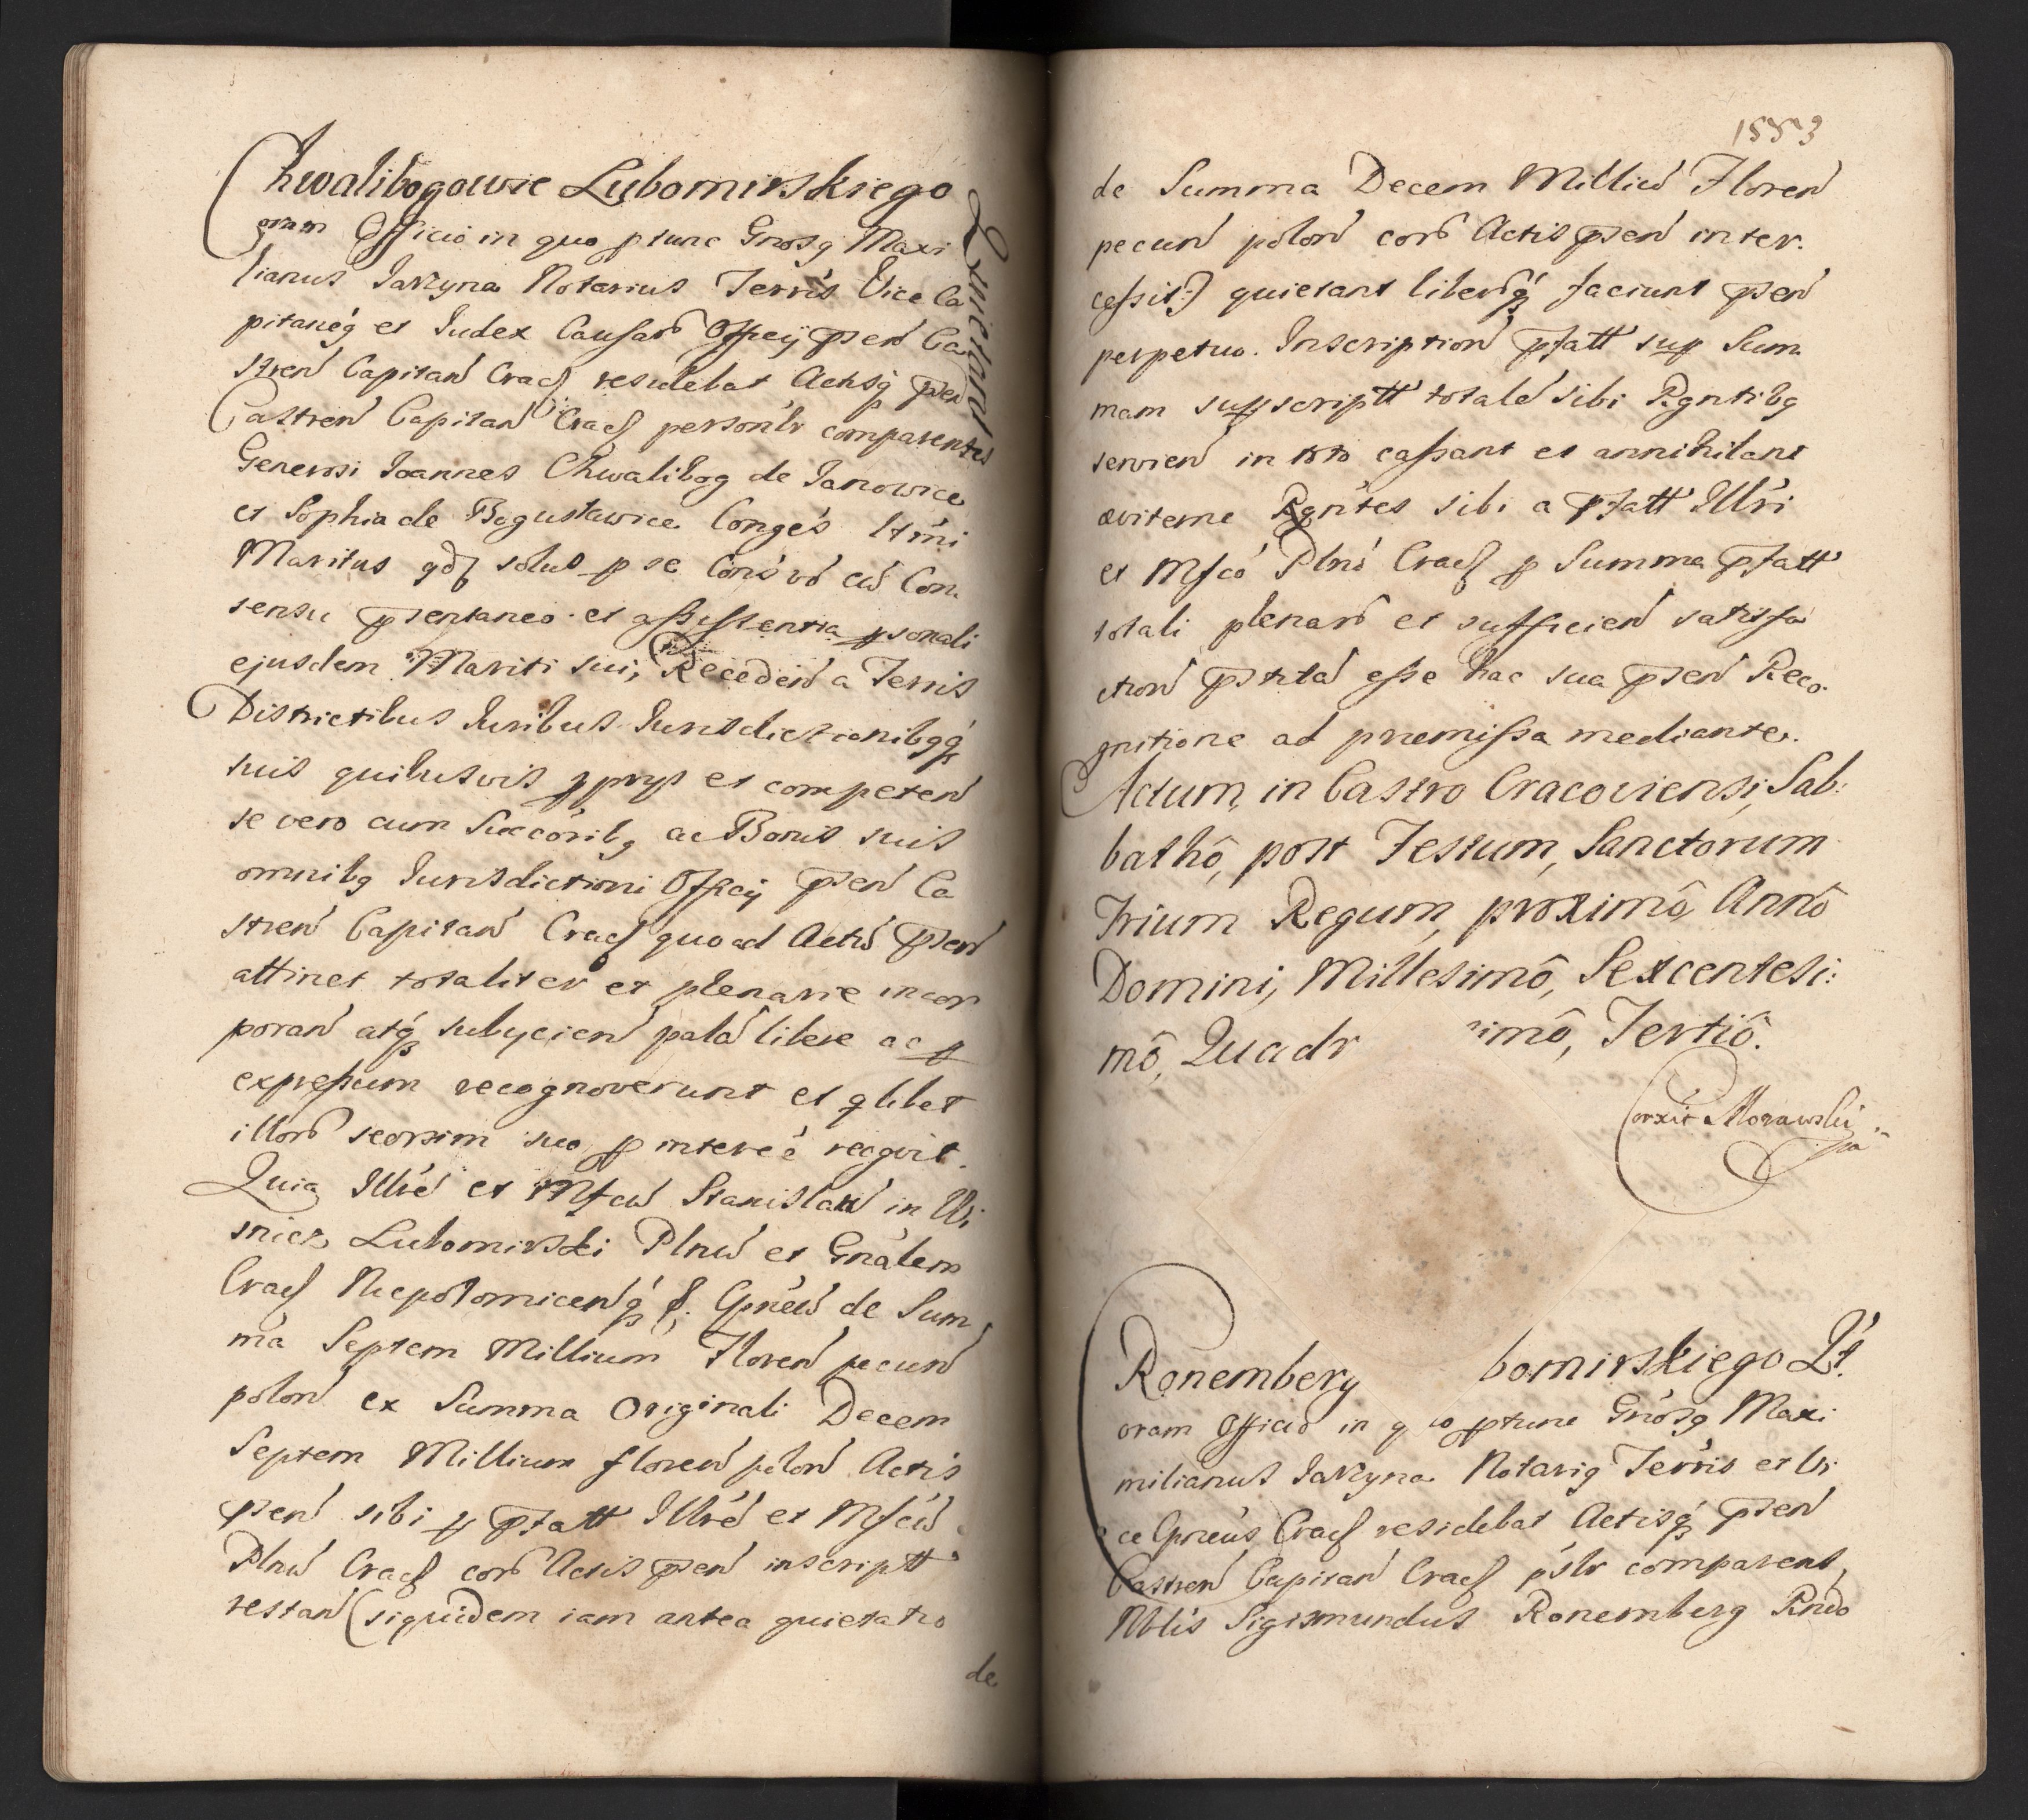 Chwalibogowie Lubomirskiego
Quietant
oram Officio in quo ptunc Gnosq Maxi
lianus Jarzyna Notarius Terris Vice Ca
pitaneq et Judex Causar Offcij psen Ca
stren Capitan Cracf residebat Actisq psen
Castren Capitan Cracf personlr comparentes
Generosi Joannes Chwalibog de Janowice
et Sophia de Bogusławice Conges ltmi
Maritus qdz solus p se Cons vo cu Con
sensu psentaneo et assistentia psonali
ejusdem Mariti sui, Receden a Terris
Districtibus Juribus Jurisdictionibqq
suis quibusvis pprys et competen
se vero cum Succoribq ac Bonis suis
omnibq Jurisdictioni Offcij psen Ca
stren Capitan Cracf quoad Actu psen
attinet totaliter et plenarie incor
poran atq subycien pala libere ac p
expressum recognoverunt et qlibet
illor seorsim suo p interee recgvit.
Quia Illre et Mfcu Stanislau in Wi
snicz Lubomirski Plnu et Gnalem
Cracf Niepolomicenq f. Cpneu de Sum
ma Septem Millium Floren pecun
polon ex Summa Originali Decem
Septem Millium floren polon Actis
psen sibi p pfatt Illre et Mfcu
Plnu Cracf cor Actis psen inscriptt
restan (siquidem iam antea quietatio
de
1553
de Summa Decem Milliu Floren
pecun polon cor Actis psen inter.
cessit:) quietant liberq faciunt psen
perpetuo. Inscription pfatt sup Sum
mam supscriptt totale sibi Rgntibq
servien in toto cassant et annihilant
æviterne Rgntes sibi a pfatt Illri
et Mfco Plno Cracf p Summa pfatt
totali plenar et sufficien satisfa
ction pstita esse hac sua psen Reco.
gnitione ad premissa mediante.
Actum, in Castro Cracoviensi, Sab:
bathô, post Festum, Sanctorum
Trium Regum, proximô, Annô
Domini, Millesimô, Sexcentesi:
mô, Quadr imô, Tertiô.
Corxit Morawski
Ronemberg bomirskiego Qt
oram Officio in q uo ptunc Gnosq Maxi
milianus Jarzyna Notariq Terris et Vi
ce Cpneus Cracf residebat Actisq psen
Castren Capitan Cracf pslr comparens,
Nblis Sigismundus Ronemberg Rndo